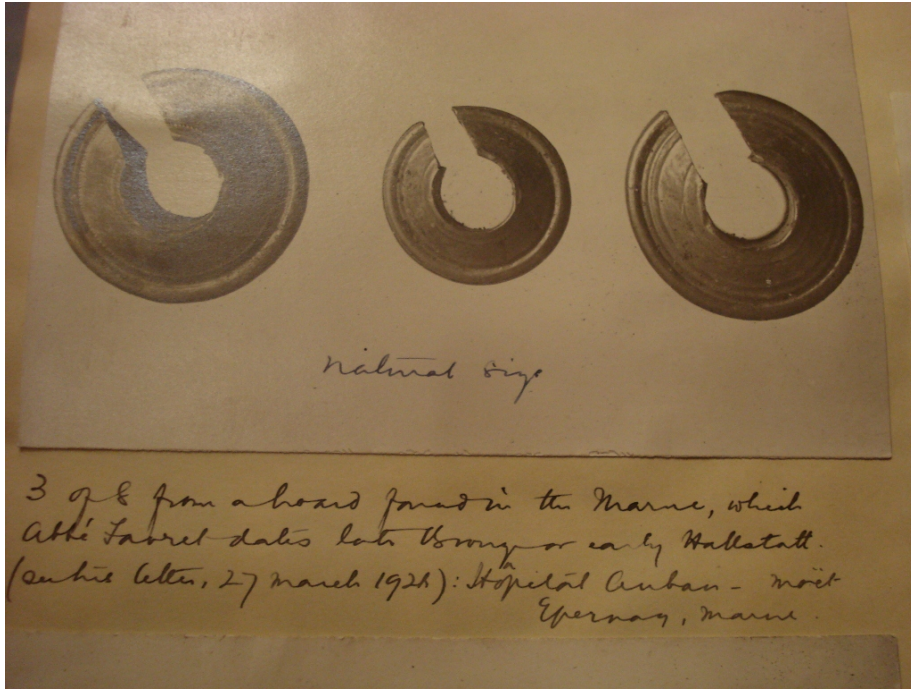 natural size
3 of 8 from a hoard found in the Marne, which
Abbé Favret dates late Bronze or early Hallstatt.
(see his letter, 27 March 192): Hôpital Auban - Moët
Epernay, Marne.